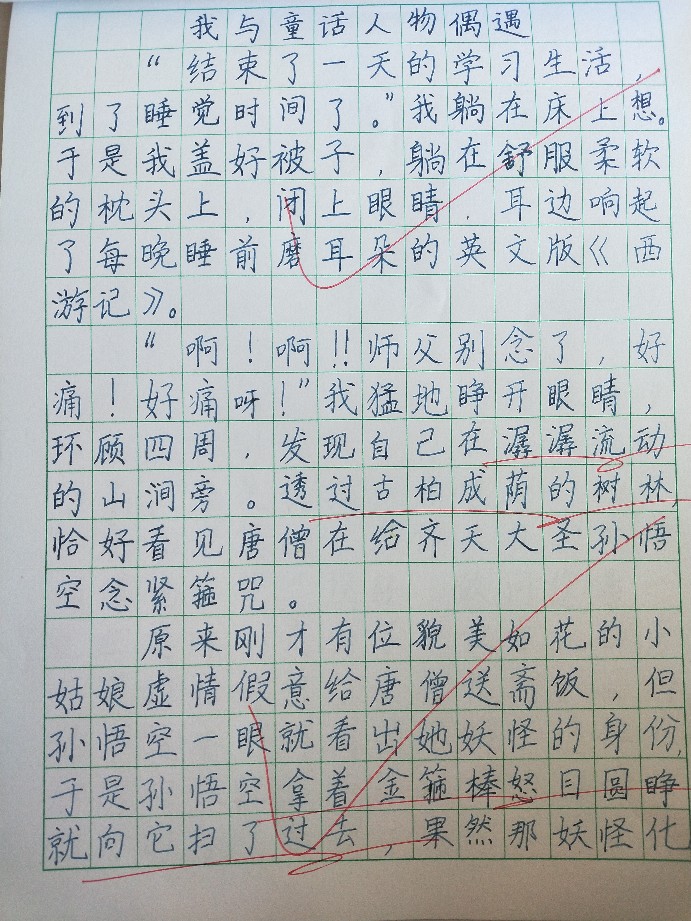 我与童话人物偶遇
“结束了一天的学习生活，
到了睡觉时间了。”我躺在床上想。
于是我盖好被子，躺在舒服柔软
的枕头上，闭上眼睛，耳边响起
了每晚睡前磨耳朵的英文版《西
游记》。
“啊！啊！！师父别念了，好
痛！好痛呀！”我猛地睁开眼睛，
环顾四周，发现自己在潺潺流动
的山涧旁。透过古柏成荫的树林，
恰好看见唐僧在给齐天大圣孙悟
空念紧箍咒。
原来刚才有位貌美如花的小
姑娘虚情假意给唐僧送斋饭，但
孙悟空一眼就看出她妖怪的身份，
于是孙悟空拿着金箍棒怒目圆睁
就向它扫了过去，果然那妖怪化